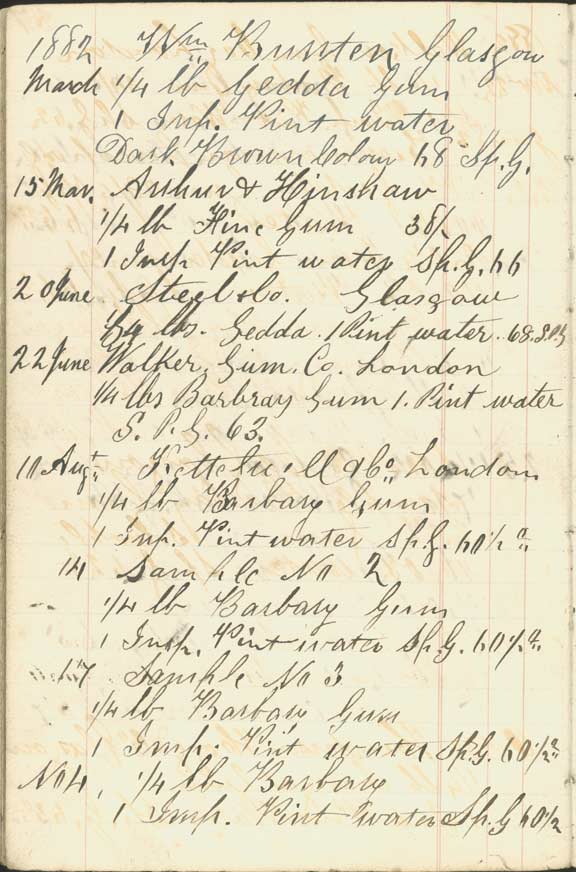 1882 Wm Bunten Glasgow
March 1/4 lb Gedda Gum
1 Imp. Pint water
Dark Brown Colour 68 Sp.G.
15 Mar. Arthur & Hinshaw
1/4 lb Fine Gum 38/
1 Imp Pint water Sp.G. 66
20 June Steel & Co. Glasgow
lbs. Gedda. 1 Pint water. 68. S.P.G
22 June Walker, Gum. Co. London
1/4 lbs Barbray Gum 1. Pint water
S. P. G. 63.
10 Augt Kettelwell & Co. London
1/4 lb Barbary Gum
1 Imp. Pint water Sp.G. 60 1/2
14 Sample No 2
1/4 lb Barbary Gum
1 Imp. Pint water Sp.G. 60 1/2
17 Sample No 3
1/4 lb Barbary Gum
1 Imp. Pint water Sp.G. 60 1/2
No 4, 1/4 lb Barbary
1 Imp. Pint water Sp.G 60 1/2